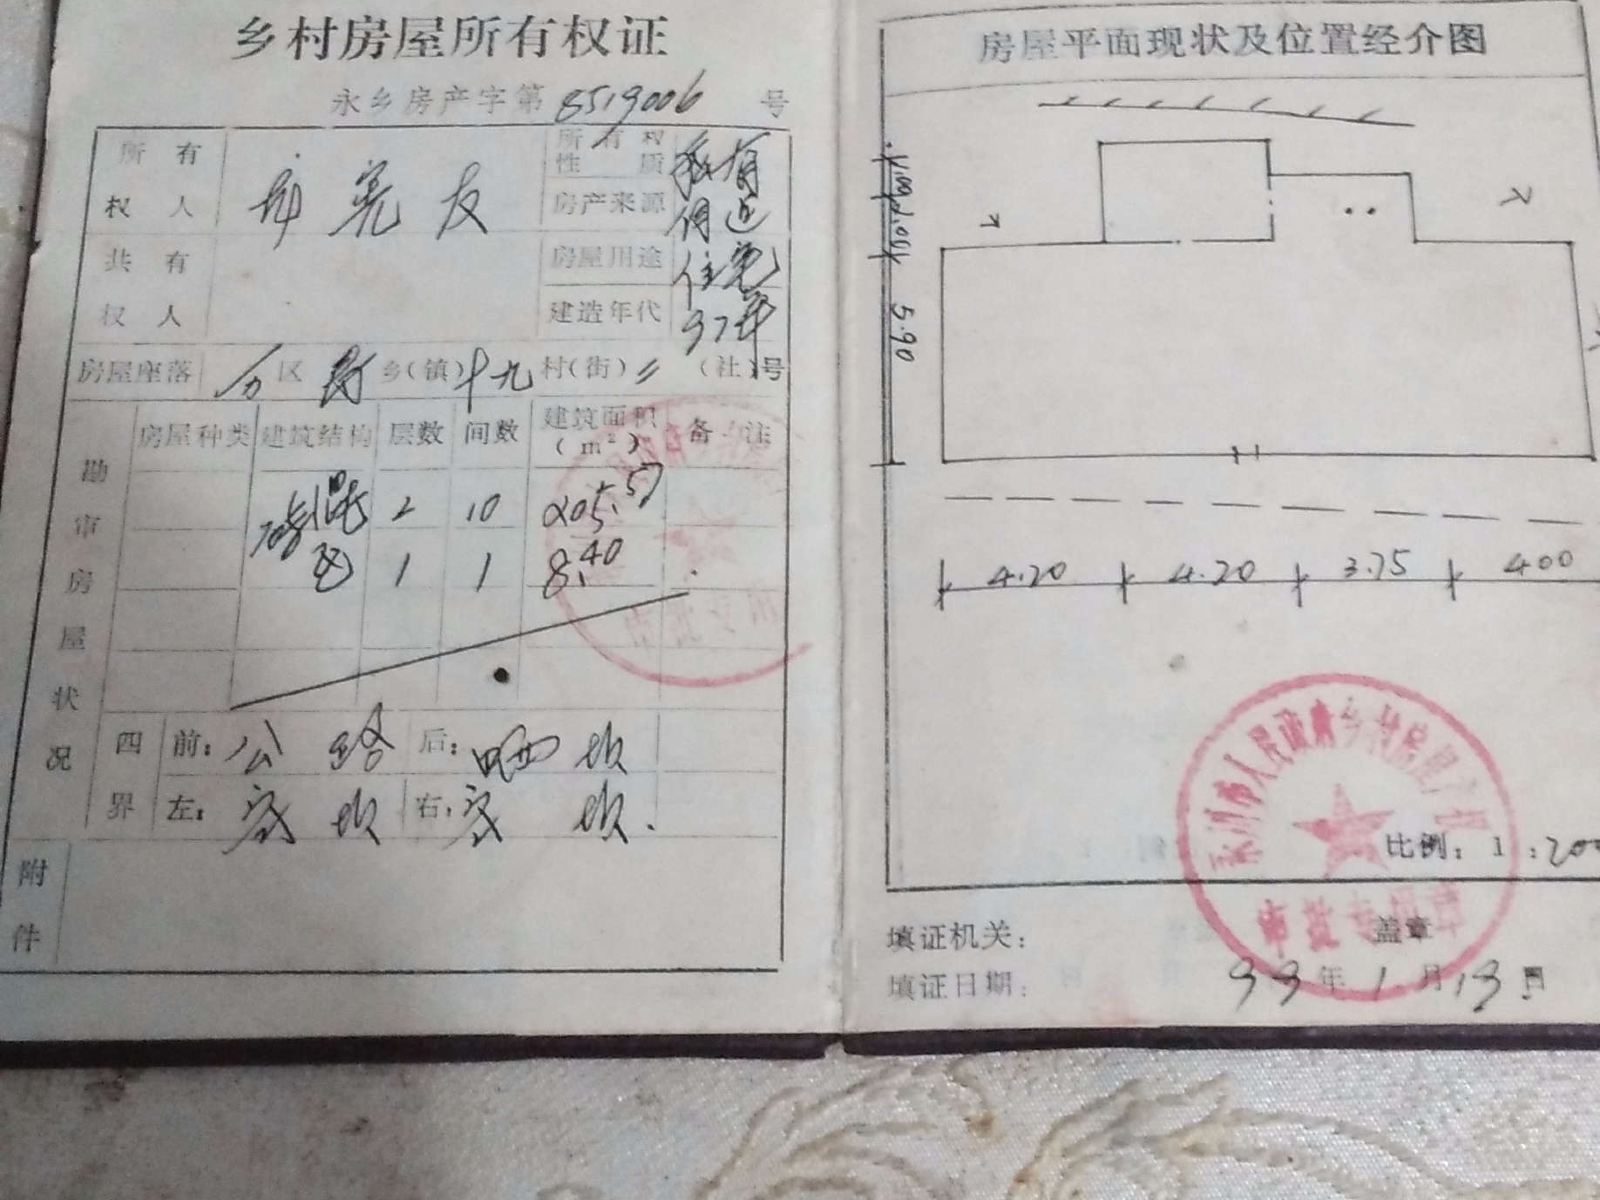 乡村房屋所有权证
永乡房产字第8519006号
所有权人
所有权性质 私有
房产来源
共有权人
房屋用途 住宅
建造年代 97年
房屋座落 区 乡(镇)十九村(街) (社)号
勘审房屋状况
房屋种类 建筑结构 层数 间数 建筑面积(m²) 备注
砖混 2 10 205.57
1 1 8.40
四界 前:公路 后:晒坝
左: 坝 右: 坝
附件
房屋平面现状及位置经介图
5.90
4.20 4.20 3.75 4.00
永川市人民政府乡村房屋产权
审批专用章
比例:1:200
填证机关: 盖章
填证日期: 99年1月13日